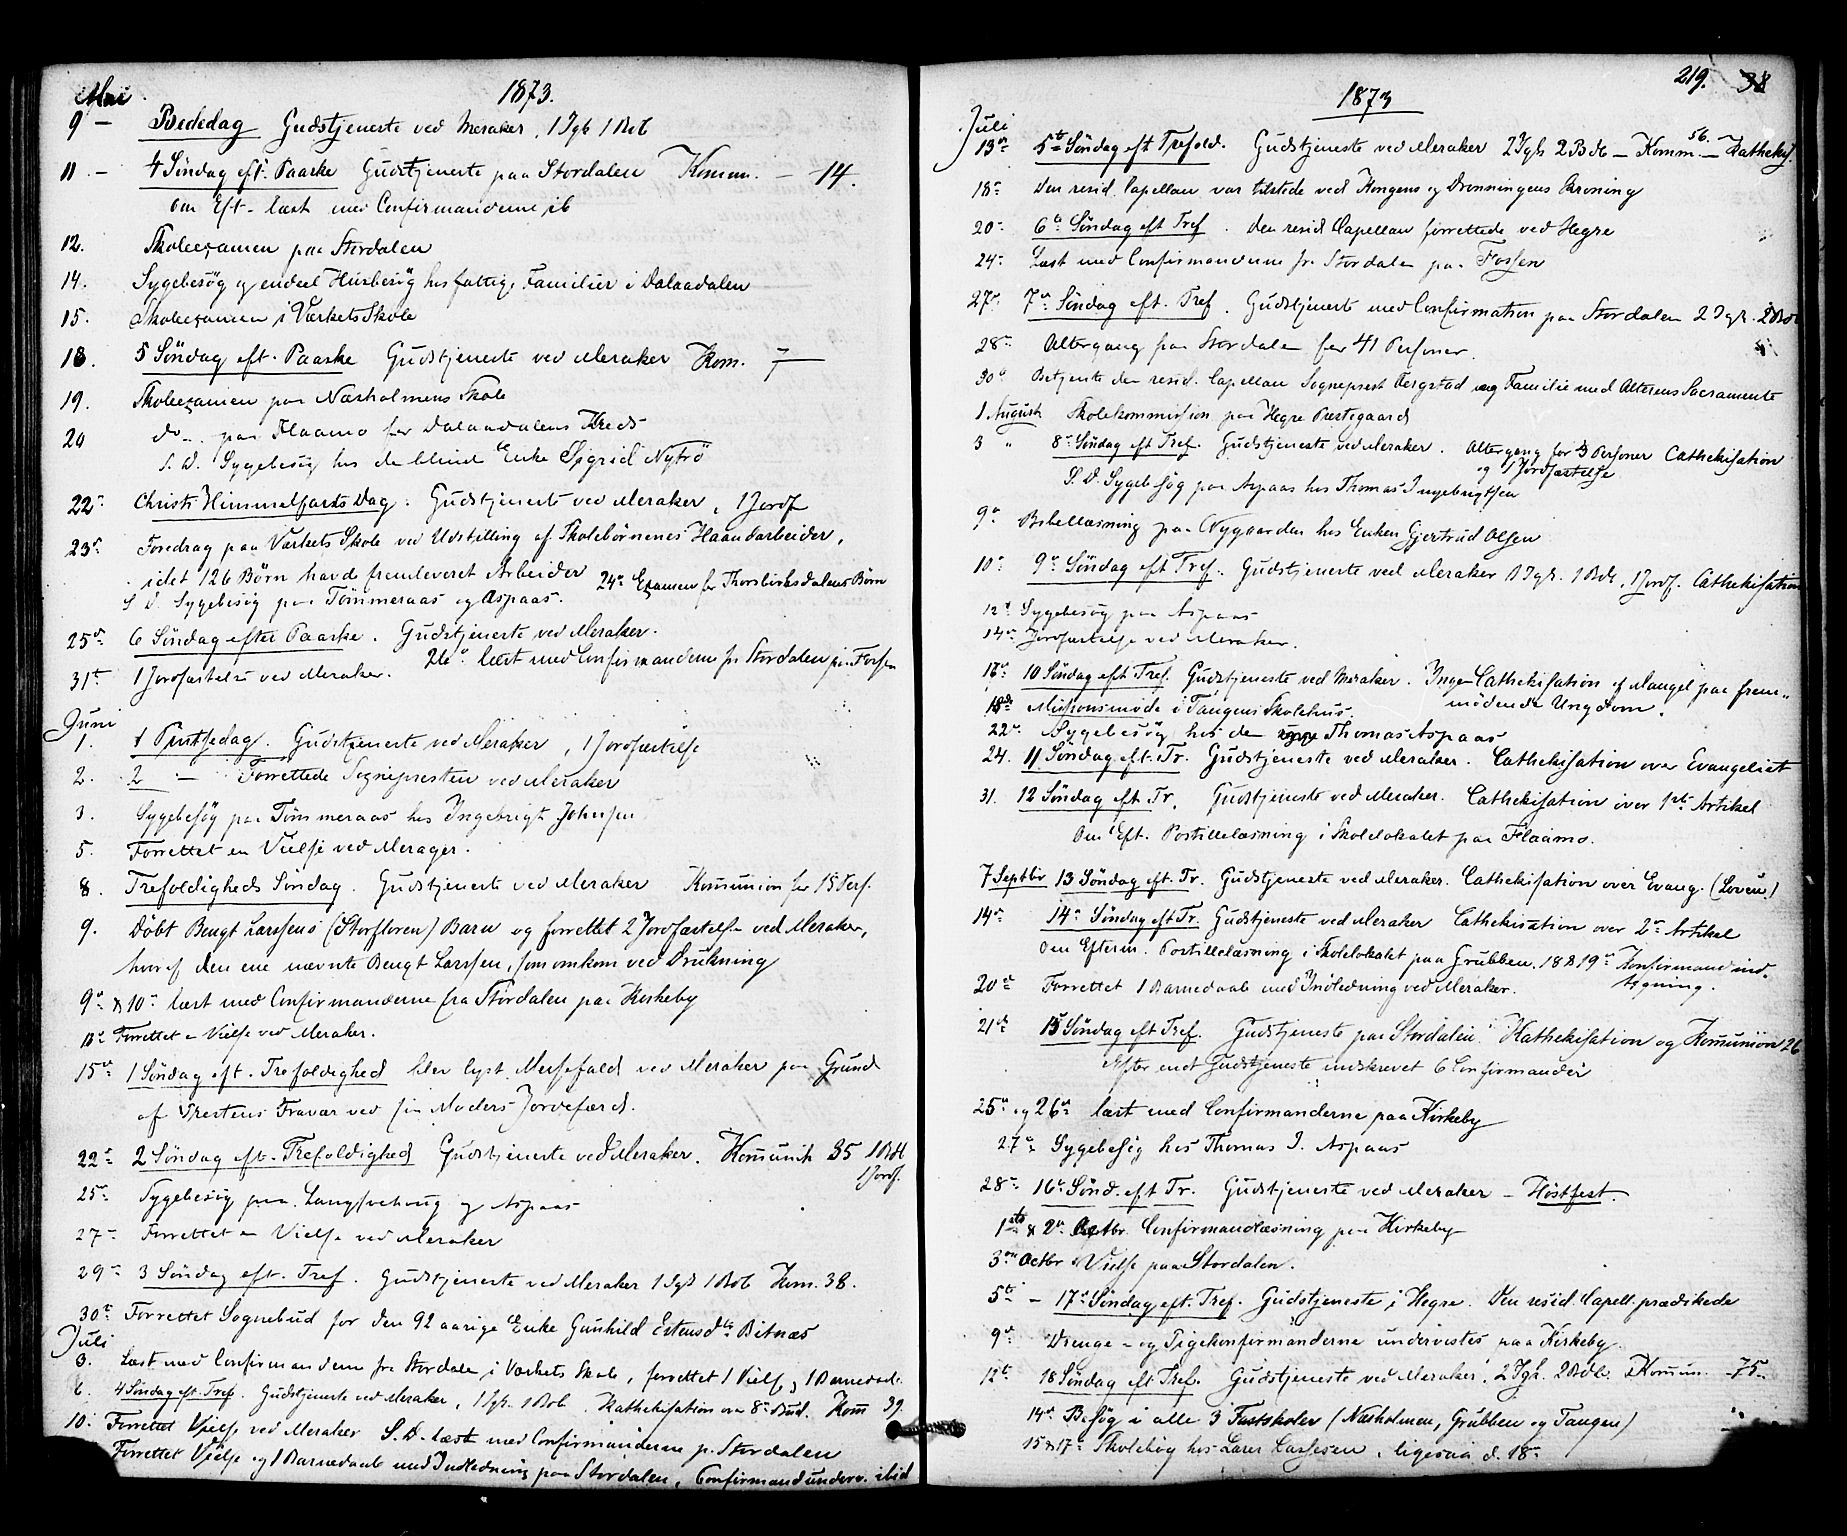 Mai 1873.
9 — Bededag Gudstjeneste ved Meraker, 1 Tgb 1 Bob
11. — 4 Söndag eft. Paaske Gudstjeneste paa Stordalen Komm. — 14.
om Eft. læst med Confirmanderne ib
12. Skoleexamen paa Stordalen
14. Sygebesög og endeel Huusbesög hos fattige Familier i Dalaadalen
15. Skoleexamen i Værkets Skole
18. 5 Söndag eft. Paaske Gudstjeneste ved Meraker Kom. 7
19. Skoleexamen paa Næsholmens Skole
20 do. paa Flaamo for Dalaadalens Kreds
S. D. Sygebesög hos den blinde Enke Sigrid Nytrö
22de Christi Himmelfarts Dag. Gudstjeneste ved Meraker, 1 Jordf
23de Foredrag paa Værkets Skole ved Udstilling af Skolebörnenes Haandarbeider,
idet 126 Börn havde fremleveret Arbeider 24de Examen for Thorsbiørksdalens Börn
S. d. Sygebesög paa Tömmeraas og Aspaas.
25de 6 Söndag efter Paaske. Gudstjeneste ved Meraker.
26de læst med Confirmanderne fr Stordalen paa Fossen
31te 1 Jordfæstelse ved Meraker.
Juni
1. 1 Pintsedag. Gudstjeneste ved Meraker, 1 Jordfæstelse
2. 2 — Forrettede Sognepresten ved Meraker
3. Sygebesög paa Tömmeraas hos Ingebrigt Johnsen
5. Forrettet en Vielse ved Merager.
8. Trefoldigheds Söndag. Gudstjeneste ved Meraker Kommunion for 18 Pers.
9. Döbt Bengt Larssens (Storfloren) Barn og forrettet 2 Jordfæstelse ved Meraker,
hvoraf den ene nævnte Bengt Larssen, som omkom ved Drukning
9de & 10de læst med Confirmanderne fra Stordalen paa Kirkeby
Forrettet en Vielse ved Meraker.
15de 1 Söndag eft. Trefoldighed blev lyst Messefald ved Meraker paa Grund
af Prestens Fravær ved sin Moders Jordefærd.
22de 2 Söndag eft. Trefoldighed Gudstjeneste ved Meraker. Kommunik 35 1 Bdb
1 Jordf.
25de Sygebesög paa Langsvehaug og Aspaas
27de Forrettet en Vielse ved Meraker
29de 3 Söndag eft. Tref. Gudstjeneste ved Meraker 1 Tgb 1 Bob Kom. 38.
30te Forrettet Sognebud for den 92 aarige Enke Gunhild Estensdtr Bitnæs
Juli
3. Læst med Confirmanderne fra Stordalen i Værkets Skole, forrettet 1 Vielse og 1 Barnedaab.
6. 4 Söndag eft. Tref. Gudstjeneste ved Meraker, 1 Tgb. 1 Bob. Kathekisation over 8de Bud. Kom 39.
10. Forrettet Vielse ved Meraker S.D. læst med Confirmanderne fr. Stordalen
Forrettet Vielse og 1 Barnedaab med Indledning paa Stordalen, Confirmandunderv. ibid
219. 38
1873
Juli
13de 5te Söndag eft Trefold. Gudstjeneste ved Meraker 2 Tgb 2 Bdb — Komm. 56. — Kathekis.
18de Den resid. Capellan var tilstede ved Kongens og Dronningens Kroning
20de 6te Söndag eft Tref. den resid Capellan forrettede ved Hegre
24de Læst med Confirmanderne fr Stordalen paa Fossen
27de 7de Söndag eft. Tref. Gudstjeneste med Confirmation paa Stordalen 2 Tgb. 2 Bdb
28de Altergang paa Stordalen for 41 Personer.
30te Betjente den resid. Capellan Sogneprest Bergstad og Familie med Alterens Sacramente
1 August Skolekommission paa Hegre Præstegaard
3 " 8de Söndag eft Tref. Gudstjeneste ved Meraker. Altergang for 3 Personer Cathekisation
og 1 Jordfæstelse
S. D. Sygebesög paa Aspaas hos Thomas Ingebrigtsen
9de Bibellæsning paa Nygaarden hos Enken Gjertrud Olsen
10de 9de Söndag eft Tref. Gudstjeneste ved Meraker 1 Tgb. 1 Bdb, 1 Jordf. Cathekisation
12te Sygebesög paa Aspaas
14de Jordfæstelse ved Meraker.
10 Söndag eft Tref. Gudstjeneste ved Meraker. Ingen Cathekisation af Mangel paa frem-
mödende Ungdom.
18de Missionsmöde i Tangens Skolehus.
22de Sygebesög hos den syge Thomas Aspaas
24. 11 Söndag eft. Tr. Gudstjeneste ved Meraker. Cathekisation over Evangeliet
31. 12 Söndag eft Tr. Gudstjeneste ved Meraker. Cathekisation over 1ste Artikel
Om Eft. Postillelæsning i Skolelokalet paa Flaamo.
7 Septbr 13 Söndag eft. Tr. Gudstjeneste ved Meraker. Cathekisation over Evang. (Loven)
14de 14de Söndag eft Tr. Gudstjeneste ved Meraker Cathekisation over 2den Artikel
Om Efterm. Postillelæsning i Skolelokalet paa Grubben. 18 & 19de Konfirmandind-
tegning.
20de Forrettet 1 Barnedaab med Indledning ved Meraker.
21de 15 Söndag eft Tref. Gudstjeneste paa Stordalen. Kathekisation og Kommunion 26
Efter endt Gudstjeneste indskrevet 6 Confirmander
25de og 26de læst med Confirmanderne paa Kirkeby
27de Sygebesög hos Thomas I. Aspaas
28de 16de Sönd. eft Tr. Gudstjeneste ved Meraker — Höstfest.
1ste & 2den Octbr Confirmandlæsning paa Kirkeby
3die Octbr Vielse paa Stordalen.
5te — 17de Söndag eft. Tref. Gudstjeneste i Hegre. Den resid. Capell. prædikede
9de Drenge- og Pigekonfirmanderne undervistes paa Kirkeby.
12te 18 Söndag eft Tref. Gudstjeneste ved Meraker. 2 Tgb. 2 Bdb. Komm. 75.
14de Besög i alle 3 Fastskoler (Næsholmen, Grubben og Tangen)
15 & 17de Skolebög hos Lærer Larssen, ligesaa d. 18de